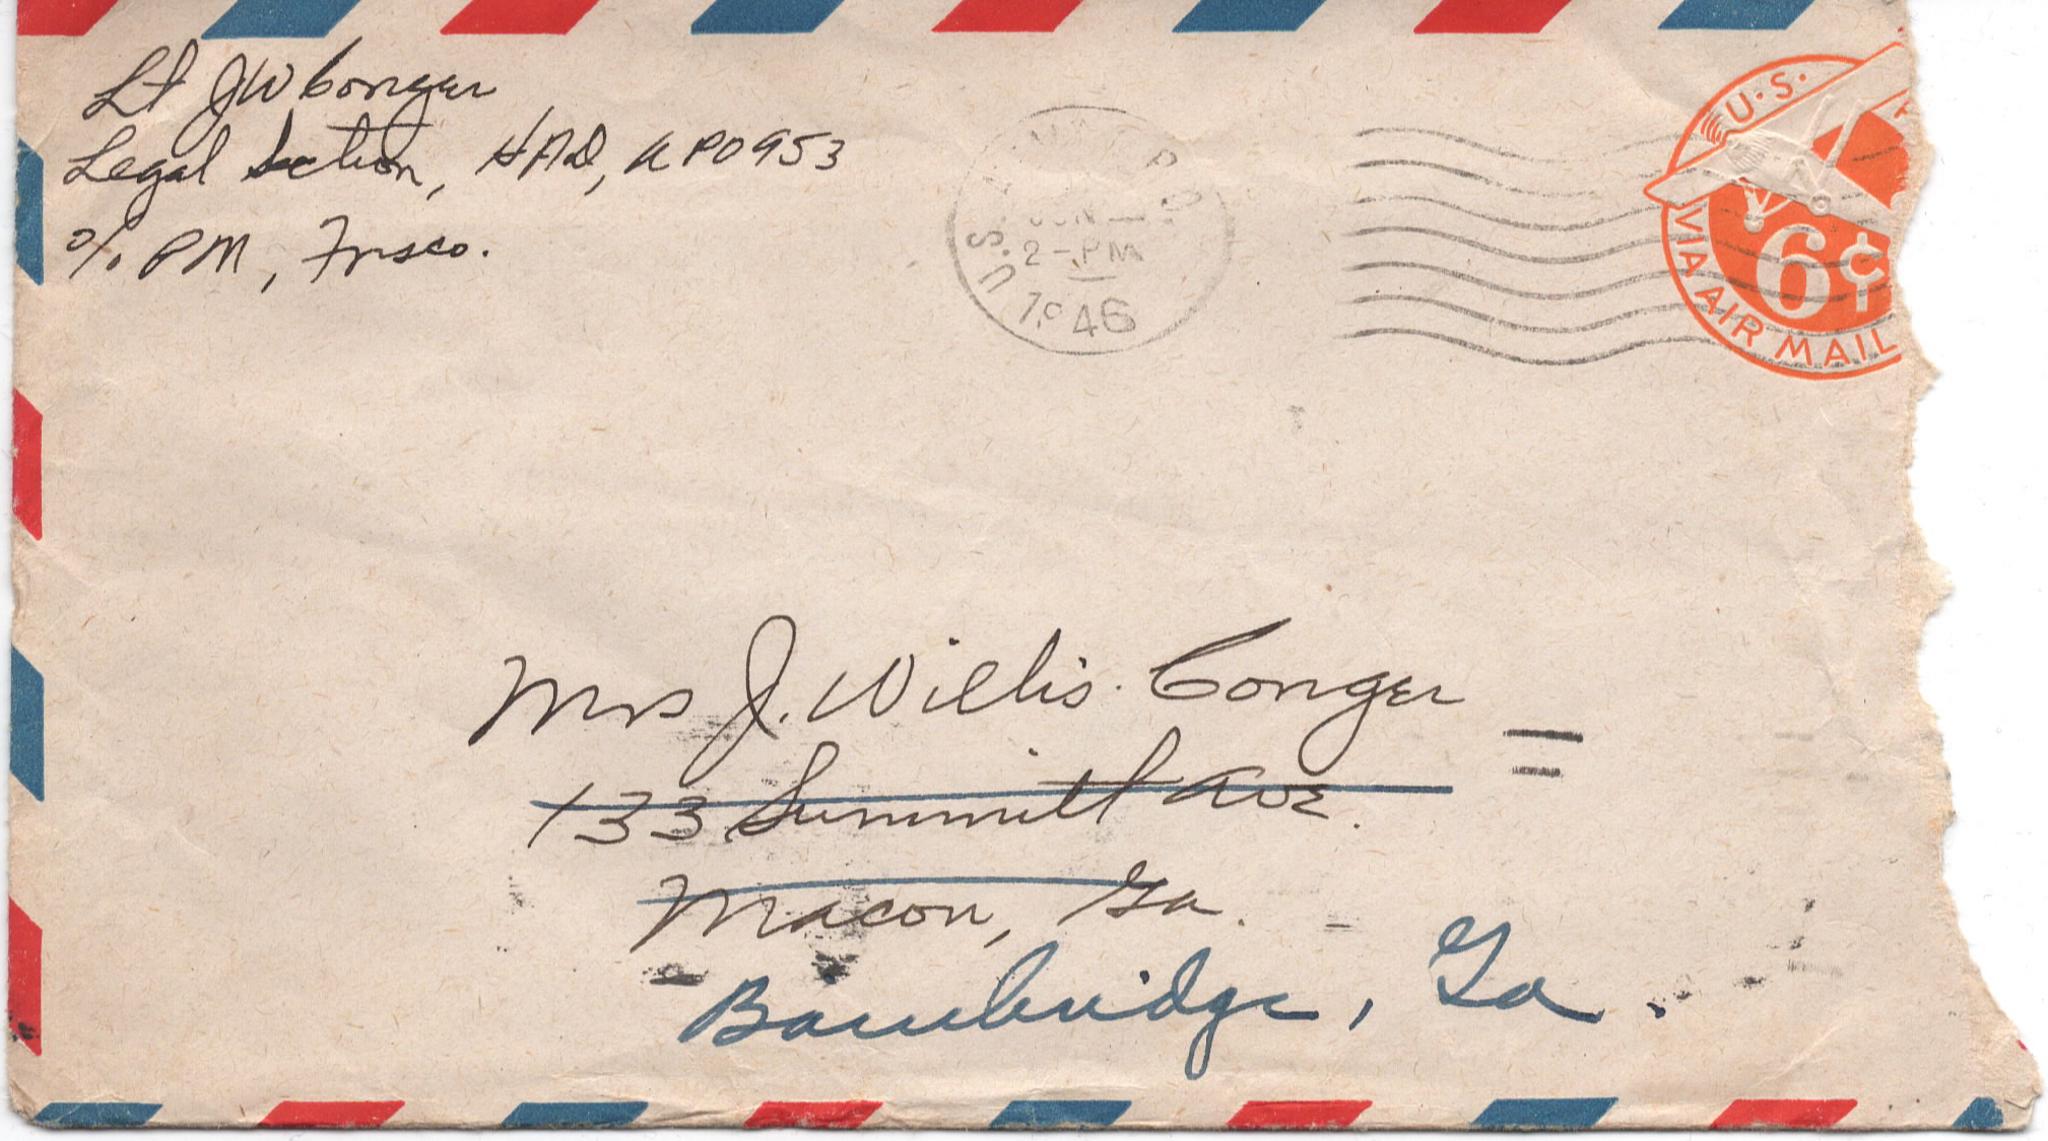 Lt JW Conger
Legal Section, HAD, APO 953
% PM, Frisco.
U.S.
2-PM
1946
U.S.
6¢
VIA AIR MAIL
Mrs J. Willis Conger
133 Summitt Ave.
Macon, Ga.
Bainbridge, Ga.